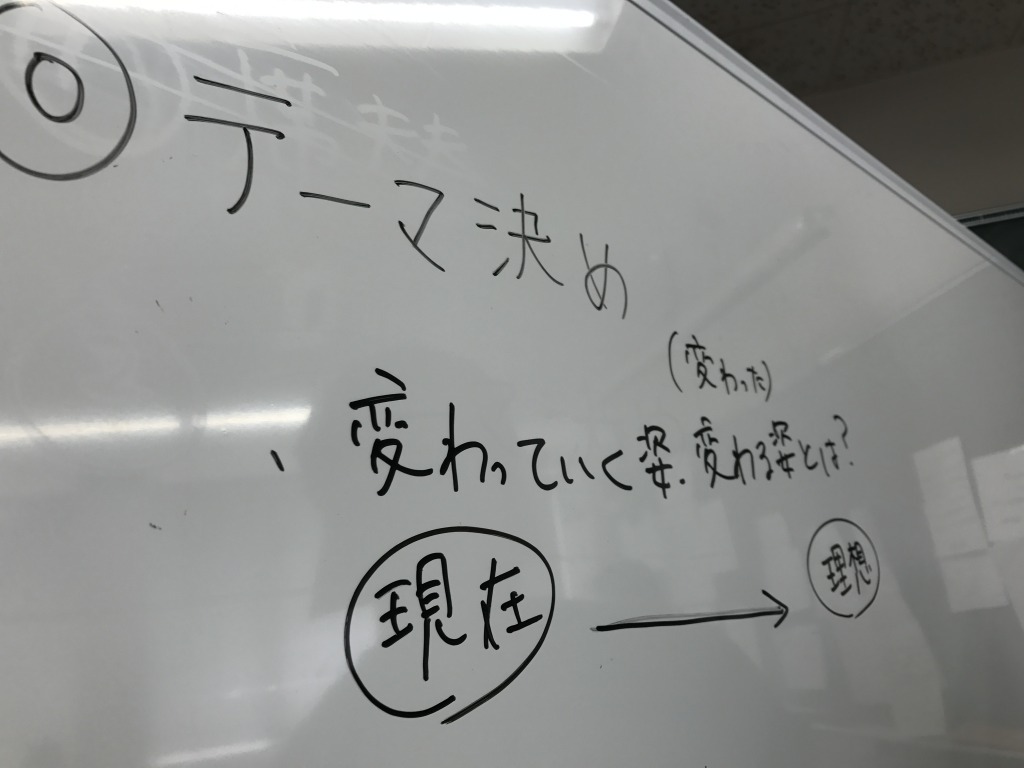 ◎ テーマ決め
(変わった)
、変わっていく姿.変わる姿とは?
現在 → 理想